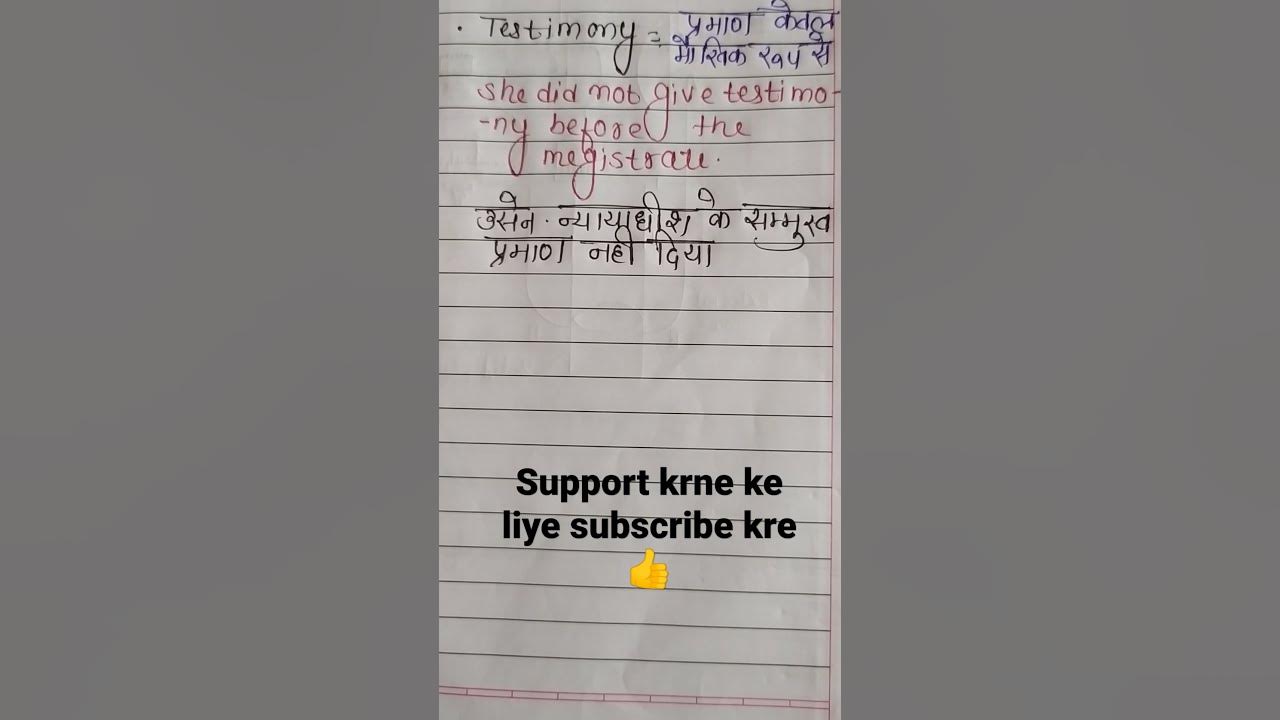 · Testimony = प्रमाण केवल
मौखिक रूप से
she did not give testimo-
-ny before the
megistrate.
उसने · न्यायाधीश के सम्मुख
प्रमाण नही दिया
Support krne ke
liye subscribe kre
👍